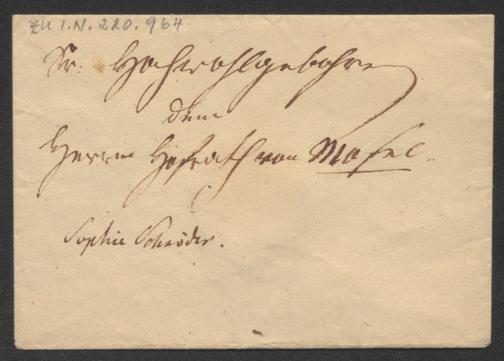 zu I.N. 220.964
Sr. Hochwohlgebohren
dem
Herrn Hofrath von Mosel.
Sophie Schröder.